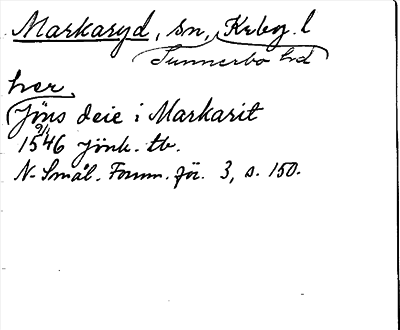 Markaryd, sn, Krbg. l
Sunnerbo hd
her
Jöns deie i Markarit
9/1
1546 Jönk. tb.
N. Smål. Fornm. för. 3, s. 150.